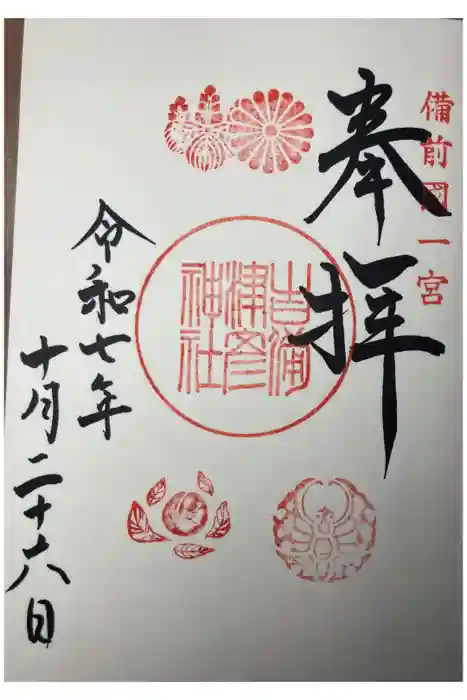 備前國一宮
奉拝
吉備
津彦
神社
令和七年
十月二十六日